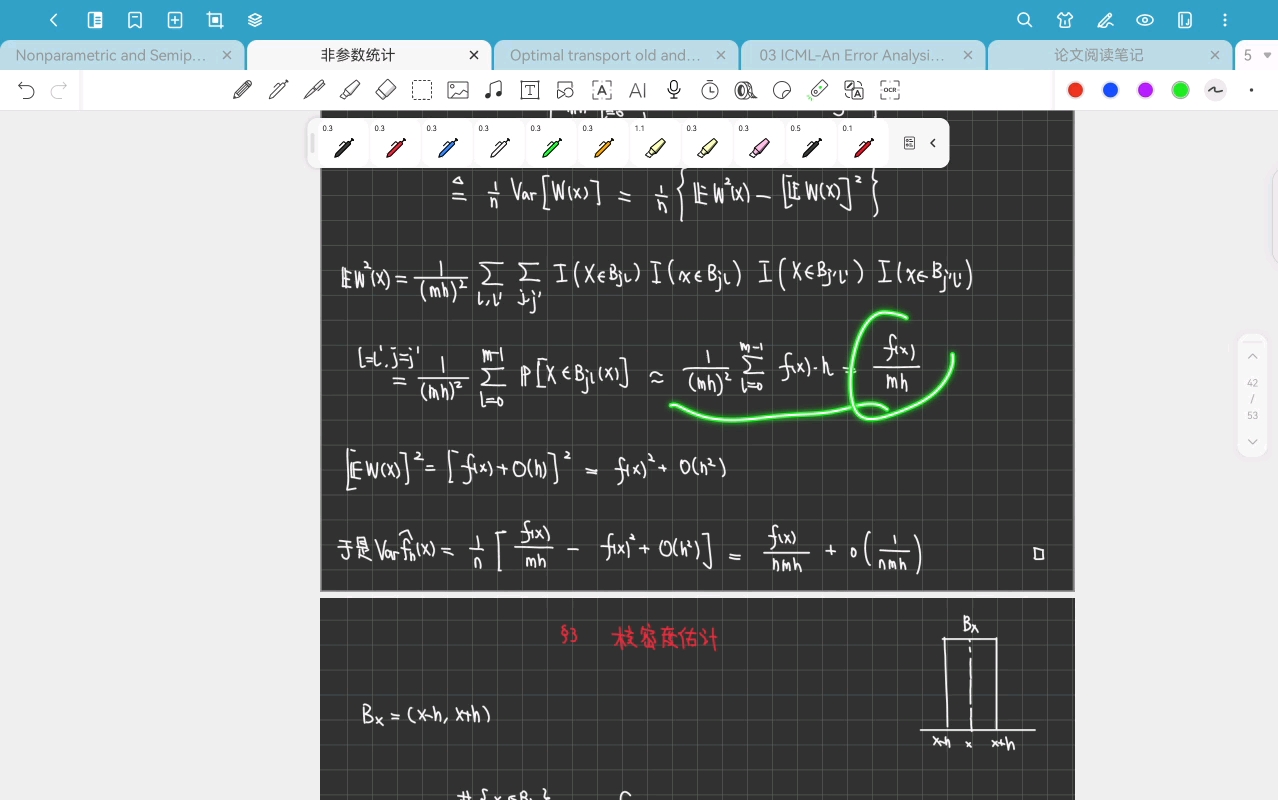 Nonparametric and Semip... × 非参数统计 × Optimal transport old and... × 03 ICML-An Error Analysi... × 论文阅读笔记 × 5
T A AI A OCR
0.3 0.3 0.3 0.3 0.3 0.3 1.1 0.3 0.3 0.5 0.1
≜ 1/n Var[W(x)] = 1/n {𝔼W²(x) − [𝔼W(x)]²}
𝔼W²(x) = 1/(mh)² ∑_{l,l'} ∑_{j,j'} I(X∈B_{jl}) I(x∈B_{jl}) I(X∈B_{j'l'}) I(x∈B_{j'l'})
l=l', j=j'
= 1/(mh)² ∑_{l=0}^{m-1} ℙ[X∈B_{jl}(x)] ≈ 1/(mh)² ∑_{l=0}^{m-1} f(x)·h = f(x)/mh
[𝔼W(x)]² = [f(x)+O(h)]² = f(x)² + O(h²)
于是 Var f̂_h(x) = 1/n [f(x)/mh − f(x)² + O(h²)] = f(x)/nmh + o(1/nmh) □
42
/
53
§3 核密度估计
B_x
B_x = (x-h, x+h)
x-h x x+h